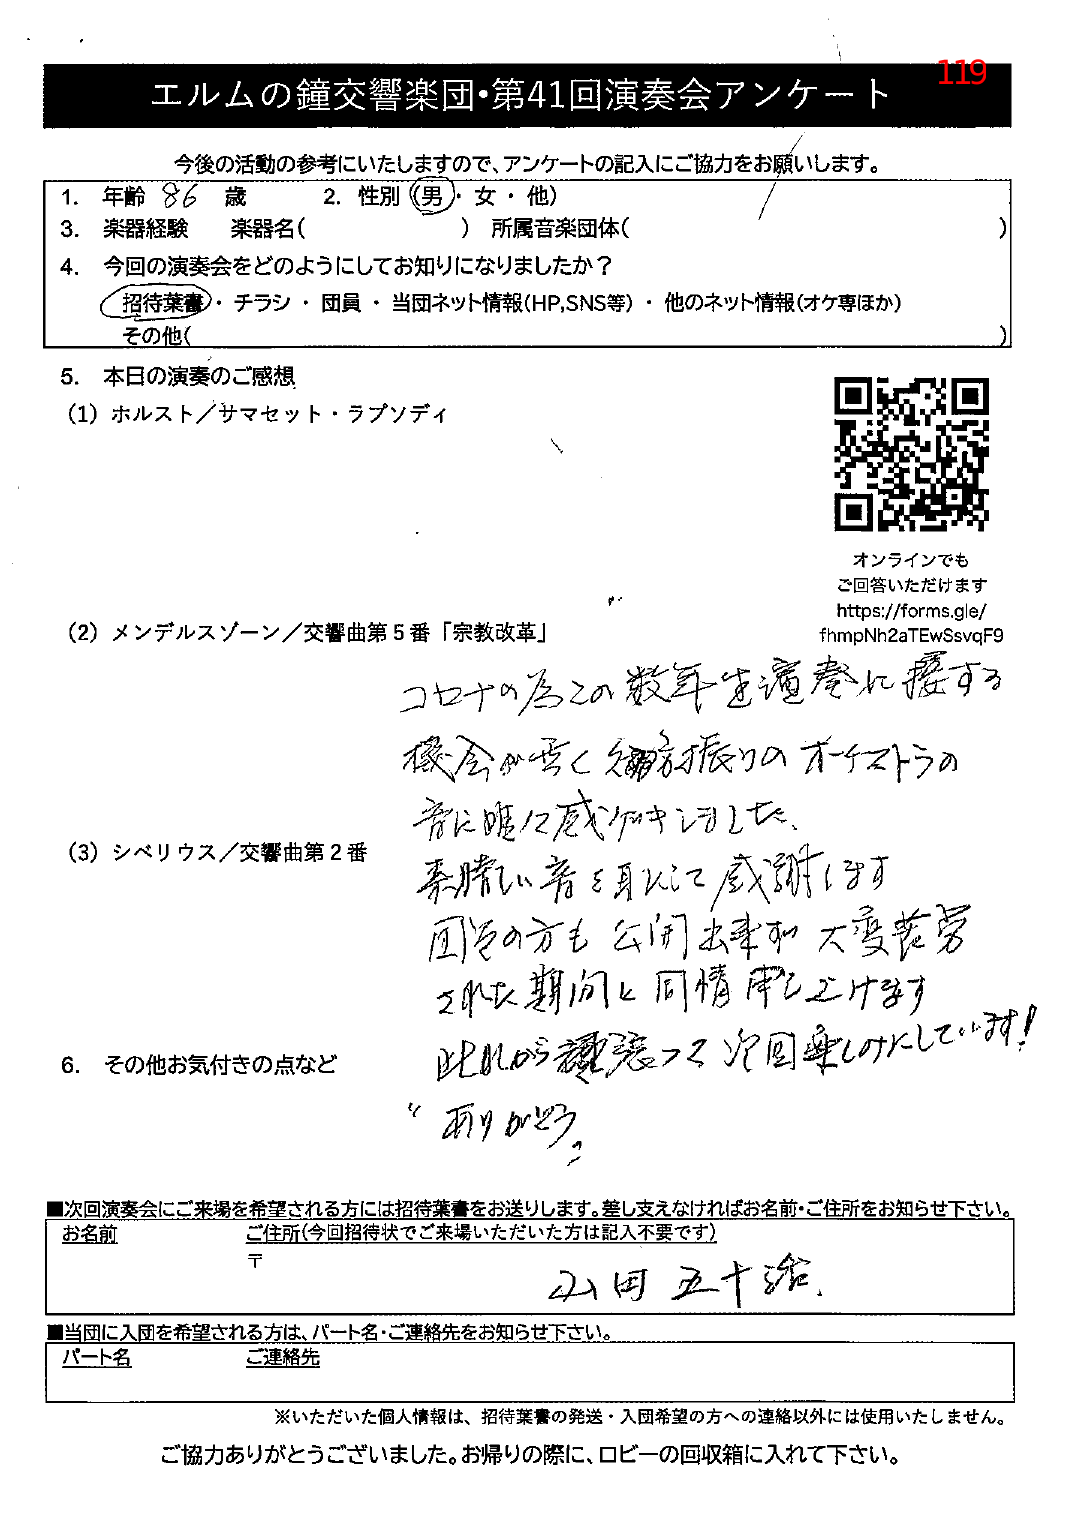 119
エルムの鐘交響楽団・第41回演奏会アンケート
今後の活動の参考にいたしますので、アンケートの記入にご協力をお願いします。
1. 年齢 86 歳 2. 性別 (男・女・他)
3. 楽器経験 楽器名( ) 所属音楽団体( )
4. 今回の演奏会をどのようにしてお知りになりましたか？
招待葉書・チラシ・団員・当団ネット情報(HP,SNS等)・他のネット情報(オケ専ほか)
その他( )
5. 本日の演奏のご感想
(1) ホルスト／サマセット・ラプソディ
オンラインでも
ご回答いただけます
https://forms.gle/
fhmpNh2aTEwSsvqF9
(2) メンデルスゾーン／交響曲第５番「宗教改革」
コロナの為この数年生演奏に接する
機会が無く 振りのオーケストラの
音に 感 しました、
(3) シベリウス／交響曲第２番
素晴しい音を耳にして感謝します
団員の方も公開出来ず大変苦労
された期間と同情申し上げます
此れから頑張って次回楽しみにしています！
6. その他お気付きの点など
"ありがとう"
■次回演奏会にご来場を希望される方には招待葉書をお送りします。差し支えなければお名前・ご住所をお知らせ下さい。
お名前 ご住所(今回招待状でご来場いただいた方は記入不要です)
〒
山田 五十治
■当団に入団を希望される方は、パート名・ご連絡先をお知らせ下さい。
パート名 ご連絡先
※いただいた個人情報は、招待葉書の発送・入団希望の方への連絡以外には使用いたしません。
ご協力ありがとうございました。お帰りの際に、ロビーの回収箱に入れて下さい。